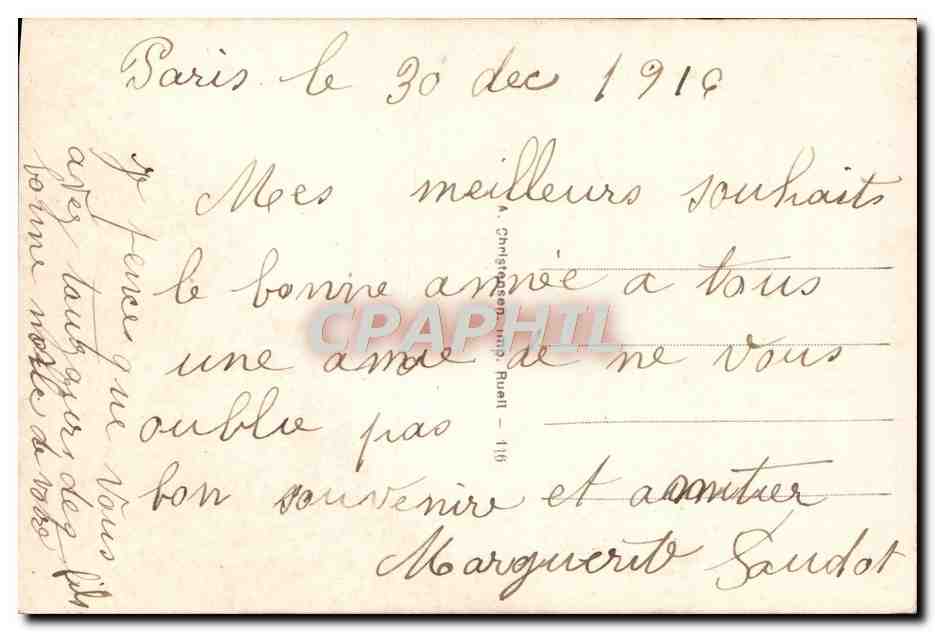 Paris le 30 dec 1916
Mes meilleurs souhaits
de bonne année a tous
une amie de ne vous
oublie pas
bon souvenire et amitier
Marguerite Saudot
je pences que vous
avez toujours des
bonne de votre fils
A. Christensen, imp. Rueil - 116
CPAPHIL